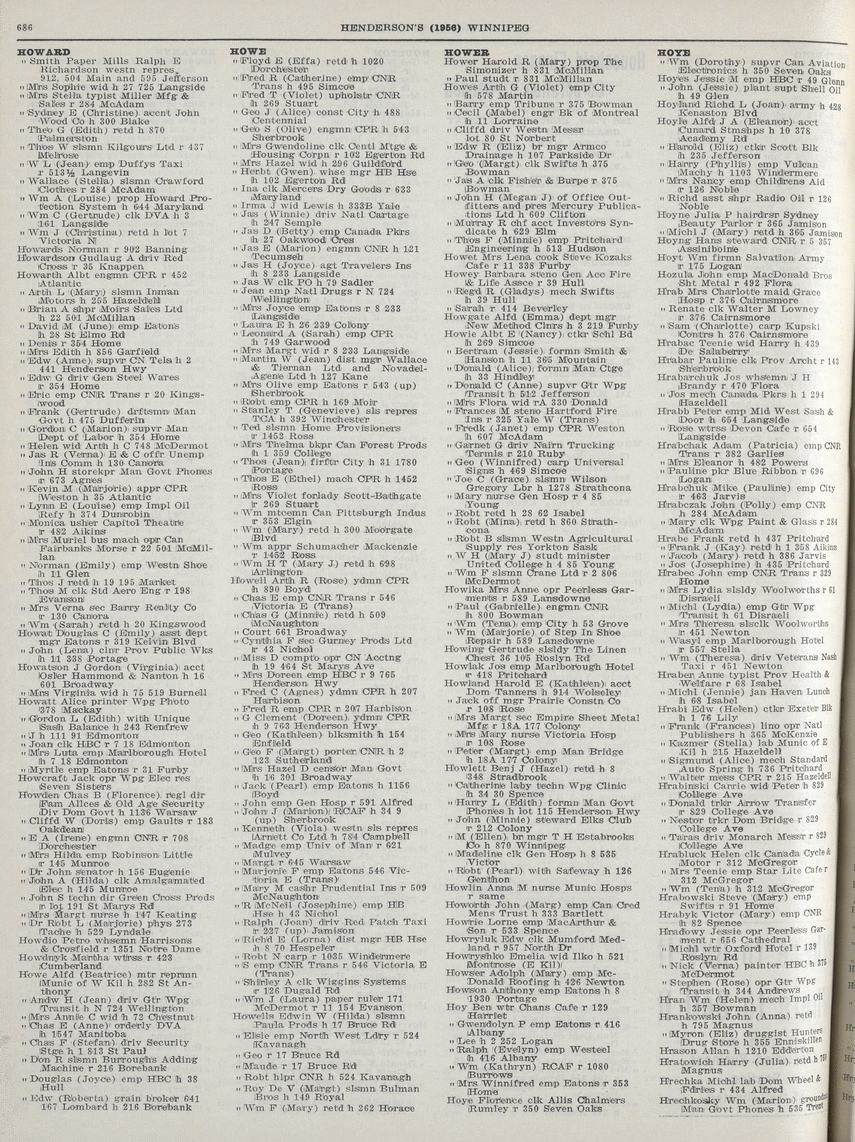 686
HENDERSON'S (1956) WINNIPEG
HOWARD
" Smith Paper Mills Ralph E
Richardson westn repres,
912, 504 Main and 595 Jefferson
" Mrs Sophie wid h 27 725 Langside
" Mrs Stella typist Miller Mfg &
Sales r 284 McAdam
" Sydney E (Christine) accnt John
Wood Co h 300 Blake
" Theo G (Edith) retd h 870
Palmerston
" Thos W slsmn Kilgours Ltd r 437
Melrose
" W L (Jean) emp Duffys Taxi
r 513½ Langevin
" Wallace (Stella) slsmn Crawford
Clothes r 284 McAdam
" Wm A (Louise) prop Howard Pro-
tection System h 644 Maryland
" Wm C (Gertrude) clk DVA h 3
161 Langside
" Wm J (Christina) retd h lot 7
Victoria N
Howards Norman r 902 Banning
Howardson Gudlaug A driv Red
Cross r 36 Knappen
Howarth Albt engmn CPR r 452
Atlantic
" Arth L (Mary) slsmn Inman
Motors h 255 Hazeldell
" Brian A shpr Moirs Sales Ltd
h 22 501 McMillan
" David M (June) emp Eatons
h 28 St Elmo Rd
" Denis r 354 Home
" Mrs Edith h 856 Garfield
" Edw (Anne) supvr CN Tels h 2
441 Henderson Hwy
" Edw G driv Gen Steel Wares
r 354 Home
" Eric emp CNR Trans r 20 Kings-
wood
" Frank (Gertrude) drftsmn Man
Govt h 475 Dufferin
" Gordon C (Marion) supvr Man
Dept of Labor h 354 Home
" Helen wid Arth h C 748 McDermot
" Jas R (Verna) E & C offr Unemp
Ins Comm h 130 Canora
" John H storekpr Man Govt Phones
r 673 Agnes
" Kevin M (Marjorie) appr CPR
Weston h 35 Atlantic
" Lynn E (Louise) emp Impl Oil
Refy h 374 Dunrobin
" Monica usher Capitol Theatre
r 482 Aikins
" Mrs Muriel bus mach opr Can
Fairbanks Morse r 22 501 McMil-
lan
" Norman (Emily) emp Westn Shoe
h 11 Glen
" Thos J retd h 19 195 Market
" Thos M clk Std Aero Eng r 198
Evanson
" Mrs Verna sec Barry Realty Co
r 130 Canora
" Wm (Sarah) retd h 20 Kingswood
Howat Douglas C (Emily) asst dept
mgr Eatons r 319 Kelvin Blvd
" John (Lena) clnr Prov Public Wks
h 11 338 Portage
Howatson J Gordon (Virginia) acct
Osler Hammond & Nanton h 16
601 Broadway
" Mrs Virginia wid h 75 519 Burnell
Howatt Alice printer Wpg Photo
378 Mackay
" Gordon L (Edith) with Unique
Sash Balance h 243 Renfrew
" J h 111 91 Edmonton
" Joan clk HBC r 7 18 Edmonton
" Mrs Luta emp Marlborough Hotel
h 7 18 Edmonton
" Myrtle emp Eatons r 31 Furby
Howcraft Jack opr Wpg Elec res
Seven Sisters
Howden Chas B (Florence) regl dir
Fam Allces & Old Age Security
Div Dom Govt h 1136 Warsaw
" Cliffd W (Doris) emp Gaults r 183
Oakdean
" E A (Irene) engmn CNR r 708
Dorchester
" Mrs Hilda emp Robinson Little
r 145 Munroe
" Dr John senator h 156 Eugenie
" John A (Hilda) clk Amalgamated
Elec h 145 Munroe
" John S techn dir Green Cross Prods
r lot 191 St Marys Rd
" Mrs Margt nurse h 147 Keating
" Dr Robt L (Marjorie) phys 273
Tache h 529 Lyndale
Howdio Petro whsemn Harrisons
& Crosfield r 1351 Notre Dame
Howdnyk Martha wtrss r 423
Cumberland
Howe Alfd (Beatrice) mtr reprmn
Munic of W Kil h 282 St An-
thony
" Andw H (Jean) driv Gtr Wpg
Transit h N 724 Wellington
" Mrs Annie C wid h 72 Chestnut
" Chas E (Anne) orderly DVA
h 1547 Manitoba
" Chas F (Stefan) driv Security
Stge h 1 813 St Paul
" Don R slsmn Burroughs Adding
Machine r 216 Borebank
" Douglas (Joyce) emp HBC h 38
Hull
" Edw (Roberta) grain broker 641
167 Lombard h 216 Borebank
HOWE
" Floyd E (Effa) retd h 1020
Dorchester
" Fred R (Catherine) emp CNR
Trans h 495 Simcoe
" Fred T (Violet) upholstr CNR
h 269 Stuart
" Geo J (Alice) const City h 488
Centennial
" Geo S (Olive) engmn CPR h 543
Sherbrook
" Mrs Gwendoline clk Centl Mtge &
Housing Corpn r 102 Egerton Rd
" Mrs Hazel wid h 296 Guildford
" Herbt (Gwen) whse mgr HB Hse
h 102 Egerton Rd
" Ina clk Mercers Dry Goods r 633
Maryland
" Irma J wid Lewis h 333B Yale
" Jas (Winnie) driv Natl Cartage
h 247 Semple
" Jas D (Betty) emp Canada Pkrs
h 27 Oakwood Cres
" Jas E (Marion) engmn CNR h 121
Tecumseh
" Jas H (Joyce) agt Travelers Ins
h 8 233 Langside
" Jas W clk PO h 79 Sadler
" Jean emp Natl Drugs r N 724
Wellington
" Mrs Joyce emp Eatons r 8 233
Langside
" Laura E h 26 239 Colony
" Leonard A (Sarah) emp CPR
h 749 Garwood
" Mrs Margt wid r 8 233 Langside
" Martin W (Jean) dist mgr Wallace
& Tiernan Ltd and Novadel-
Agene Ltd h 127 Kane
" Mrs Olive emp Eatons r 543 (up)
Sherbrook
" Robt emp CPR h 169 Moir
" Stanley T (Genevieve) sls repres
TCA h 392 Winchester
" Ted slsmn Home Provisioners
r 1452 Ross
" Mrs Thelma bkpr Can Forest Prods
h 1 359 College
" Thos (Jean) firftr City h 31 1780
Portage
" Thos E (Ethel) mach CPR h 1452
Ross
" Mrs Violet forlady Scott-Bathgate
r 269 Stuart
" Wm mtcemn Can Pittsburgh Indus
r 353 Elgin
" Wm (Mary) retd h 300 Moorgate
Blvd
" Wm appr Schumacher Mackenzie
r 1452 Ross
" Wm H T (Mary J) retd h 698
Arlington
Howell Arth R (Rose) ydmn CPR
h 890 Boyd
" Chas E emp CNR Trans r 546
Victoria E (Trans)
" Chas G (Minnie) retd h 509
McNaughton
" Court 661 Broadway
" Cynthia F sec Gurney Prods Ltd
r 43 Nichol
" Miss D compto opr CN Acctng
h 19 464 St Marys Ave
" Mrs Doreen emp HBC r 9 765
Henderson Hwy
" Fred C (Agnes) ydmn CPR h 207
Harbison
" Fred R emp CPR r 207 Harbison
" G Clement (Doreen) ydmn CPR
h 9 763 Henderson Hwy
" Geo (Kathleen) blksmith h 154
Enfield
" Geo F (Margt) porter CNR h 2
123 Sutherland
" Mrs Hazel D censor Man Govt
h 16 301 Broadway
" Jack (Pearl) emp Eatons h 1156
Boyd
" John emp Gen Hosp r 591 Alfred
" John J (Marion) RCAF h 34 9
(up) Sherbrook
" Kenneth (Viola) westn sls repres
Arnett Co Ltd h 784 Campbell
" Madge emp Univ of Man r 621
Mulvey
" Margt r 645 Warsaw
" Marjorie F emp Eatons 546 Vic-
toria E (Trans)
" Mary M cashr Prudential Ins r 509
McNaughton
" R McNeil (Josephine) emp HB
Hse h 43 Nichol
" Ralph (Joan) driv Red Patch Taxi
r 227 (up) Jamison
" Richd E (Lorna) dist mgr HB Hse
h 8 70 Hespeler
" Robt N carp r 1035 Windermere
" S emp CNR Trans r 546 Victoria E
(Trans)
" Shirley A clk Wiggins Systems
r 126 Dugald Rd
" Wm J (Laura) paper ruler 171
McDermot r 11 154 Evanson
Howells Edwin W (Hilda) slsmn
Paula Prods h 17 Bruce Rd
" Elsie emp North West Ldry r 524
Kavanagh
" Geo r 17 Bruce Rd
" Maude r 17 Bruce Rd
" Robt hlpr CNR h 524 Kavanagh
" Roy De V (Margt) slsmn Bulman
Bros h 149 Royal
" Wm F (Mary) retd h 262 Horace
HOWER
Hower Harold R (Mary) prop The
Simonizer h 831 McMillan
" Paul studt r 831 McMillan
Howes Arth G (Violet) emp City
h 578 Martin
" Barry emp Tribune r 375 Bowman
" Cecil (Mabel) engr Bk of Montreal
h 11 Lorraine
" Cliffd driv Westn Messr
lot 80 St Norbert
" Edw R (Eliz) br mgr Armco
Drainage h 107 Parkside Dr
" Geo (Margt) clk Swifts h 375
Bowman
" Jas A clk Fisher & Burpe r 375
Bowman
" John H (Megan J) of Office Out-
fitters and pres Mercury Publica-
tions Ltd h 609 Clifton
" Murray R chf acct Investors Syn-
dicate h 629 Elm
" Thos F (Minnie) emp Pritchard
Engineering h 513 Hudson
Howet Mrs Lena cook Steve Kozaks
Cafe r 11 338 Furby
Howey Barbara steno Gen Acc Fire
& Life Assce r 39 Hull
" Regd R (Gladys) mech Swifts
h 39 Hull
" Sarah r 414 Beverley
Howgate Alfd (Emma) dept mgr
New Method Clnrs h 3 219 Furby
Howie Albt E (Nancy) ctkr Schl Bd
h 269 Simcoe
" Bertram (Jessie) formn Smith &
Hanson h 11 365 Mountain
" Donald (Alice) formn Man Ctge
h 33 Hindley
" Donald C (Anne) supvr Gtr Wpg
Transit h 512 Jefferson
" Mrs Flora wid rA 330 Donald
" Frances M steno Hartford Fire
Ins r 325 Yale W (Trans)
" Fredk (Janet) emp CPR Weston
h 607 McAdam
" Garnet G driv Nairn Trucking
Termls r 210 Ruby
" Geo (Winnifred) carp Universal
Signs h 469 Simcoe
" Joe C (Grace) slsmn Wilson
Gregory Lbr h 1278 Strathcona
" Mary nurse Gen Hosp r 4 85
Young
" Robt retd h 28 62 Isabel
" Robt (Mina) retd h 860 Strath-
cona
" Robt B slsmn Westn Agricultural
Supply res Yorkton Sask
" W H (Mary J) studt minister
United College h 4 85 Young
" Wm F slsmn Crane Ltd r 2 806
McDermot
Howika Mrs Anne opr Peerless Gar-
ments r 589 Lansdowne
" Paul (Gabrielle) engmn CNR
h 800 Bowman
" Wm (Tena) emp City h 53 Grove
" Wm (Marjorie) of Step In Shoe
Repair h 589 Lansdowne
Howing Gertrude slsldy The Linen
Chest 36 105 Roslyn Rd
Howlak Jos emp Marlborough Hotel
r 418 Pritchard
Howland Harold E (Kathleen) acct
Dom Tanners h 914 Wolseley
" Jack off mgr Prairie Constn Co
r 108 Rose
" Mrs Margt sec Empire Sheet Metal
Mfg r 18A 177 Colony
" Mrs Mary nurse Victoria Hosp
r 108 Rose
" Peter (Margt) emp Man Bridge
h 18A 177 Colony
Howlett Benj J (Hazel) retd h 8
348 Stradbrook
" Catherine laby techn Wpg Clinic
h 34 30 Spence
" Harry L (Edith) formn Man Govt
Phones h lot 115 Henderson Hwy
" John (Minnie) steward Elks Club
r 212 Colony
" M (Ellen) br mgr T H Estabrooks
Co h 870 Winnipeg
" Madeline clk Gen Hosp h 8 535
Victor
" Robt (Pearl) with Safeway h 126
Genthon
Howlin Anna M nurse Munic Hosps
r same
Howorth John (Marg) emp Can Cred
Mens Trust h 333 Bartlett
Howrie Lorne emp MacArthur &
Son r 533 Spence
Howryluk Edw clk Mumford Med-
land r 957 North Dr
Howryshko Emelia wid Ilko h 521
Montrose (E Kil)
Howser Adolph (Mary) emp Mc-
Donald Roofing h 426 Newton
Howson Anthony emp Eatons h 8
1930 Portage
Hoy Ben wtr Chans Cafe r 129
Harriet
" Gwendolyn P emp Eatons r 416
Albany
" Lee h 2 252 Logan
" Ralph (Evelyn) emp Westeel
h 416 Albany
" Wm (Kathryn) RCAF r 1080
Burrows
" Mrs Winnifred emp Eatons r 353
Home
Hoye Florence clk Allis Chalmers
Rumley r 350 Seven Oaks
HOYE
" Wm (Dorothy) supvr Can Aviation
Electronics h 350 Seven Oaks
Hoyes Jessie M emp HBC r 49 Glenn
" John (Jessie) plant supt Shell Oil
h 49 Glen
Hoyland Richd L (Joan) army h 428
Kenaston Blvd
Hoyle Alfd J A (Eleanor) acct
Cunard Stmshps h 10 378
Academy Rd
" Harold (Eliz) ctkr Scott Blk
h 235 Jefferson
" Harry (Phyllis) emp Vulcan
Machy h 1103 Windermere
" Mrs Nancy emp Childrens Aid
r 126 Noble
" Richd asst shpr Radio Oil r 126
Noble
Hoyne Julia P hairdrsr Sydney
Beauty Parlor r 365 Jamison
" Michl J (Mary) retd h 365 Jamison
Hoyng Hans steward CNR r 5 357
Assiniboine
Hoyt Wm firmn Salvation Army
r 175 Logan
Hozula John emp MacDonald Bros
Sht Metal r 492 Flora
Hrab Mrs Charlotte maid Grace
Hosp r 376 Cairnsmore
" Renate clk Walter M Lowney
r 376 Cairnsmore
" Sam (Charlotte) carp Kupski
Contrs h 376 Cairnsmore
Hrabac Teenie wid Harry h 439
De Salaberry
Hrabar Pauline clk Prov Archt r 143
Sherbrook
Hrabarchuk Jos whsemn J H
Brandy r 470 Flora
" Jos mech Canada Pkrs h 1 294
Hazeldell
Hrabb Peter emp Mid West Sash &
Door h 654 Langside
" Rose wtrss Devon Cafe r 654
Langside
Hrabchak Adam (Patricia) emp CNR
Trans r 382 Garlies
" Mrs Eleanor h 482 Powers
" Pauline pkr Blue Ribbon r 696
Logan
Hrabchuk Mike (Pauline) emp City
r 463 Jarvis
Hrabczak John (Polly) emp CNR
h 284 McAdam
" Mary clk Wpg Paint & Glass r 284
McAdam
Hrabe Frank retd h 437 Pritchard
" Frank J (Kay) retd h 1 358 Aikins
" Jacob (Mary) retd h 386 Jarvis
" Jos (Josephine) h 435 Pritchard
Hrabec John emp CNR Trans r 329
Home
" Mrs Lydia slsldy Woolworths r 61
Disraeli
" Michl (Lydia) emp Gtr Wpg
Transit h 61 Disraeli
" Mrs Theresa slsclk Woolworths
r 451 Newton
" Wasyl emp Marlborough Hotel
r 557 Stella
" Wm (Theresa) driv Veterans Nash
Taxi r 451 Newton
Hraber Anne typist Prov Health &
Welfare r 68 Isabel
" Michl (Jennie) jan Haven Lunch
h 68 Isabel
Hrabi Edw (Helen) ctkr Exeter Blk
h 1 76 Lily
" Frank (Frances) lino opr Natl
Publishers h 365 McKenzie
" Kazmer (Stella) lab Munic of E
Kil h 215 Hazeldell
" Sigmund (Alice) mech Standard
Auto Spring h 736 Pritchard
" Walter mess CPR r 215 Hazeldell
Hrabinski Carrie wid Peter h 829
College Ave
" Donald trkr Arrow Transfer
r 829 College Ave
" Nestor trkr Dom Bridge r 829
College Ave
" Taras driv Monarch Messr r 829
College Ave
Hrabluck Helen clk Canada Cycle &
Motor r 312 McGregor
" Mrs Teenie emp Star Lite Cafe r
312 McGregor
" Wm (Tena) h 312 McGregor
Hrabowski Steve (Mary) emp
Swifts r 91 Home
Hrabyk Victor (Mary) emp CNR
h 82 Spence
Hradowy Jessie opr Peerless Gar-
ment r 656 Cathedral
" Michl wtr Oxford Hotel r 139
Roslyn Rd
" Nick (Verna) painter HBC h 375
McDermot
" Stephen (Rose) opr Gtr Wpg
Transit h 344 Andrews
Hran Wm (Helen) mech Impl Oil
h 357 Bowman
Hrankowski John (Anna) retd
h 795 Magnus
" Myron (Eliz) druggist Hunters
Drug Store h 355 Enniskillen
Hrason Allan h 1210 Edderton
Hratowich Harry (Julia) retd h
Magnus
Hrechka Michl lab Dom Wheel &
Fdries r 434 Alfred
Hrechkosky Wm (Marion)
Man Govt Phones h 535 Trent